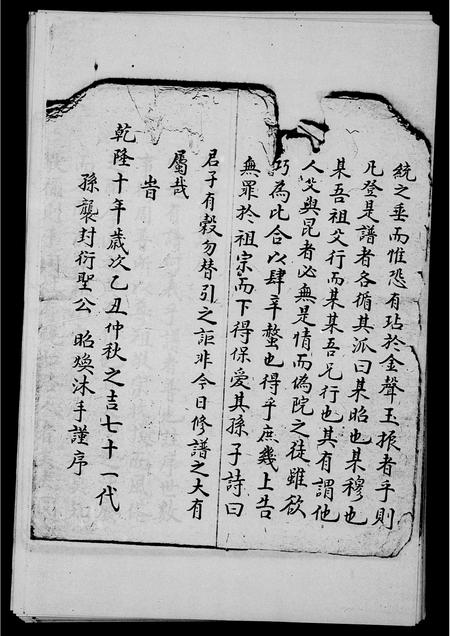 統之垂而惟恐有玷於金聲玉振者乎則
凡登是譜者各循其派曰某昭也某穆也
某吾祖父行而某某吾兄行也其有謂他
人父與昆者必無是情而偽院之徒雖欲
巧為比合以肆辛螫也得乎庶幾上告
無罪於祖宗而下得保愛其孫子詩曰
君子有穀勿替引之詎非今日修譜之大有
屬哉
旹
乾隆十年歲次乙丑仲秋之吉七十一代
孫襲封衍聖公 昭煥沐手謹序